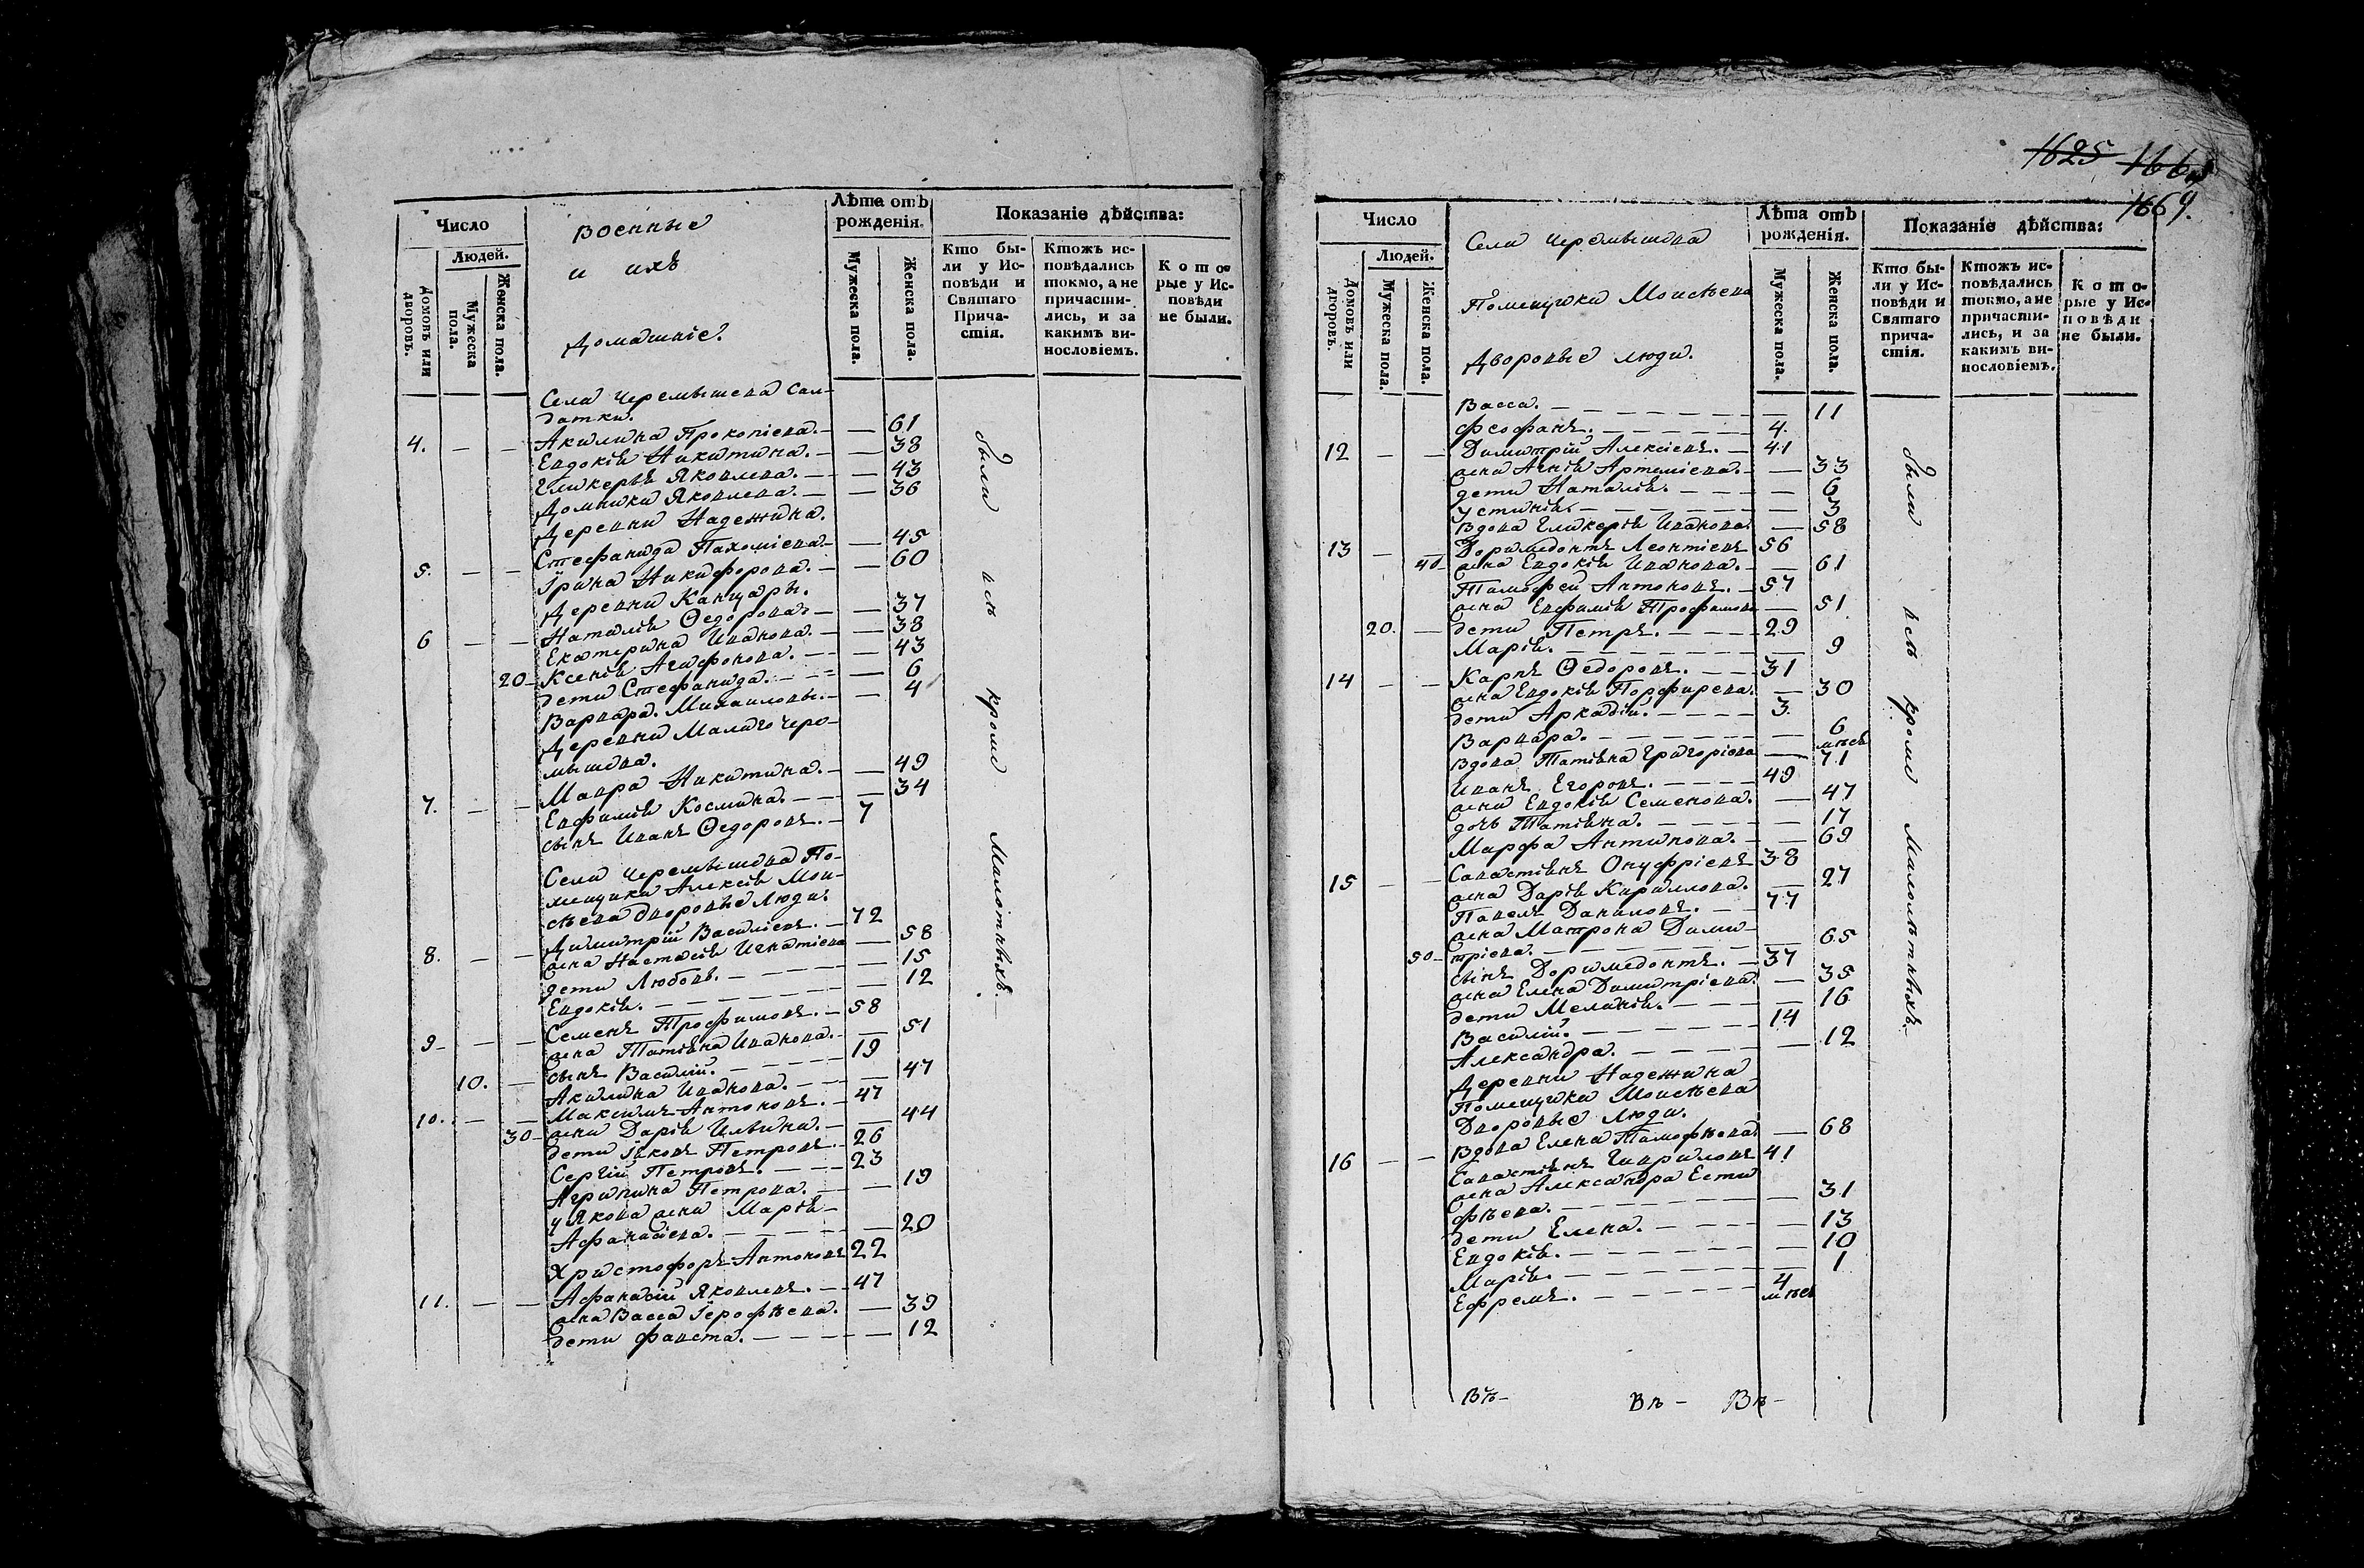 Число
Людей.
Домовъ или дворовъ.
Мужеска пола.
Женска пола.
Военные
и ихъ
домашніе.
Лѣта отъ рожденія.
Мужеска пола.
Женска пола.
Показаніе дѣйства:
Кто бы-
ли у Ис-
повѣди и
Святаго
Прича-
стія.
Ктожъ ис-
повѣдались
токмо, а не
причасти-
лись, и за
какимъ ви-
нословіемъ.
Кото-
рые у Ис-
повѣди
не были.
Села Черемышева Сал-
датки.
4. — — Акилина Прокопіева. — — 61
Евдокія Никитина. — — 38
Гликерья Яковлева. — — 43
Домника Яковлева. — — 36
Деревни Надежина.
5. — — Стефанида Пахоміева. — — 45
Ірина Никифорова. — — 60
Деревни Канцары.
6 — — Наталія Ѳедорова. — — 37
Екатерина Иванова. — — 38
20 — Ксенія Агафонова. — — 43
дети Стефанида. — — 6
Варвара Михаиловы. — — 4
Деревни Малаго Черо-
мышева.
7. — — Мавра Никитина. — — 49
Евфимія Космина. — — 34
сынъ Иванъ Ѳедоровъ. — 7
Села Черемышева По-
мещика Алексія Мои-
сѣева дворовые люди.
8. — — Димитрій Василіевъ. — 72
жена Настасія Игнатіева — 58
дети Любовь. — — 15
Евдокія. — — 12
9 — — — Семенъ Трофимовъ. — 58
жена Татіяна Иванова. — — 51
10. — сынъ Василій. — 19
Акилина Иванова. — — 47
10. — — Максимъ Антоновъ. — 47
30 — жена Дарія Ильина. — — 44
дети Іяковъ Петровъ — 26
Сергій Петровъ. — 23
Агрипина Петрова. — — 19
у Якова жена Марія
Афанасіева. — — 20
Христофоръ Антоновъ 22
11. — — Афанасій Яковлевъ. — 47
жена Васса Іерофѣева. — 39
дети Фавста. — — 12
были всѣ кроми малолѣтныхъ.
1625 1664
1669.
Число
Людей.
Домовъ или дворовъ.
Мужеска пола.
Женска пола.
Села Черемышева
Помещика Моисѣева
Дворовые люди.
Лѣта отъ рожденія.
Мужеска пола.
Женска пола.
Показаніе дѣйства:
Кто бы-
ли у Ис-
повѣди и
Святаго
прича-
стія.
Ктожъ ис-
повѣдались
токмо, а не
причасти-
лись, и за
какимъ ви-
нословіемъ.
Кото-
рые у Ис-
повѣди
не были.
Васса. — — 11
Феофанъ. — 4.
12 — — Димитрій Алексіевъ. — 41
жена Агнія Артеміева. — — 33
дети Наталія. — — 6
Устинія. — — 3
Вдова Гликерія Иванова. — 58
13 — — Доримедонтъ Леонтіевъ 56
40 — жена Евдокія Иванова. — — 61
Тимофей Антоновъ. — 57
жена Евфимія Трофимова — 51
20. — дети Петръ. — 29
Марія. — — 9
14 — — Карпъ Ѳедоровъ. — 31
жена Евдокія Порфирева. — 30
дети Аркадій. — 3.
Варвара. — — 6 мѣся
Вдова Татіяна Григоріева — 71
Иванъ Егоровъ. — 49
жена Евдокія Семенова. — 47
дочь Татіяна. — — 17
Марфа Антипова. — — 69
15 — — Савастіянъ Онуфріевъ 38
жена Дарія Кирилова. — 27
Павелъ Даниловъ. — 77
жена Матрона Дими-
50 — тріева. — — 65
сынъ Доримедонтъ. — 37
жена Елена Димитріева. — 35
дети Меланія. — — 16
Василій. — 14
Александра. — — 12
Деревни Надежина
Помещика Моисѣева
Дворовые люди.
16 — — Вдова Елена Тимофѣева. — 68
Савастіянъ Гавриловъ 41
жена Александра Ести
фѣева. — — 31
дети Елена. — — 13
Евдокія. — — 10
Марія. — — 1
Ефремъ. — 4 мѣся
были всѣ кроми малолѣтныхъ.
Въ — Въ — Въ —